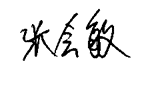 张会敏